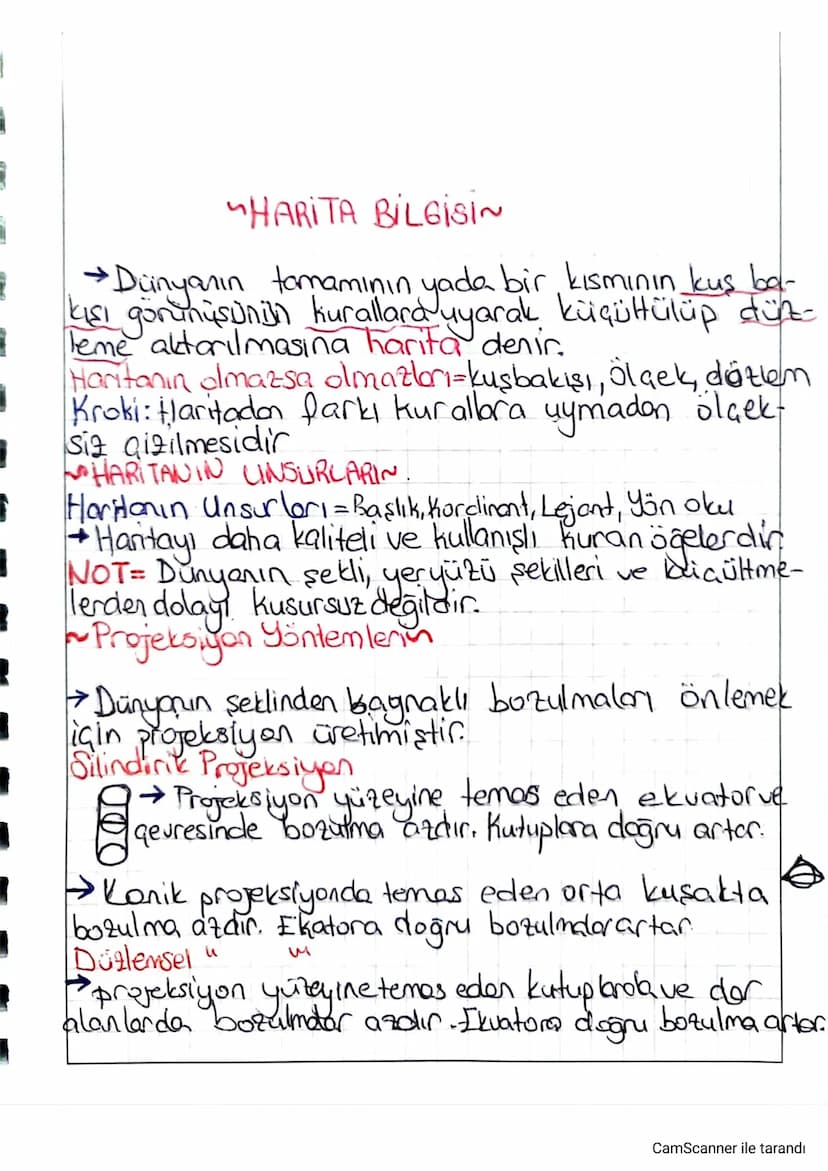 ~HARİTA BİLGİSİ~
→Dünyanın tamamının yada bir kısmının kuş ba-
kışı görünüşünün kurallara uyarak küçültülüp düz-
leme aktarılmasına harita denir.
Haritanın olmazsa olmazları=kuşbakışı, Ölçek, düzlem
Kroki: Haritadan farkı kurallara uymadan ölçek-
siz çizilmesidir
~HARİTANIN UNSURLARI~
Haritanın Unsurları=Başlık, Kordinant, Lejant, Yön oku
→Haritayı daha kaliteli ve kullanışlı kuran öğelerdir.
NOT= Dünyanın şekli, yeryüzü şekilleri ve küçültme-
lerden dolayı kusursuz değildir.
~Projeksiyon Yöntemleri~
→Dünyanın şeklinden kaynaklı bozulmaları önlemek
için projeksiyon üretilmiştir.
Silindirik Projeksiyon
→ Projeksiyon yüzeyine temas eden ekvator ve
çevresinde bozulma azdır. Kutuplara doğru artar.
→ Konik projeksiyonda temas eden orta kuşakta
bozulma azdır. Ekatora doğru bozulmalar artar
Düzlemsel " "
→projeksiyon yüzeyine temas eden kutuplarda ve dar
alanlarda bozulmalar azdır. Ekvatora doğru bozulma artar.
CamScanner ile tarandı